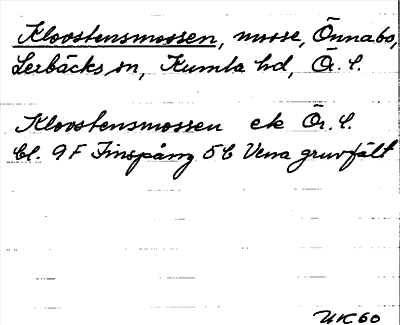 Kloostensmossen, mosse, Önnabo,
Lerbäcks sn, Kumla hd, Ör. l.
Kloostensmossen ek Ör. l.
bl. 9F Finspång 5C Vena gruvfält
UK60